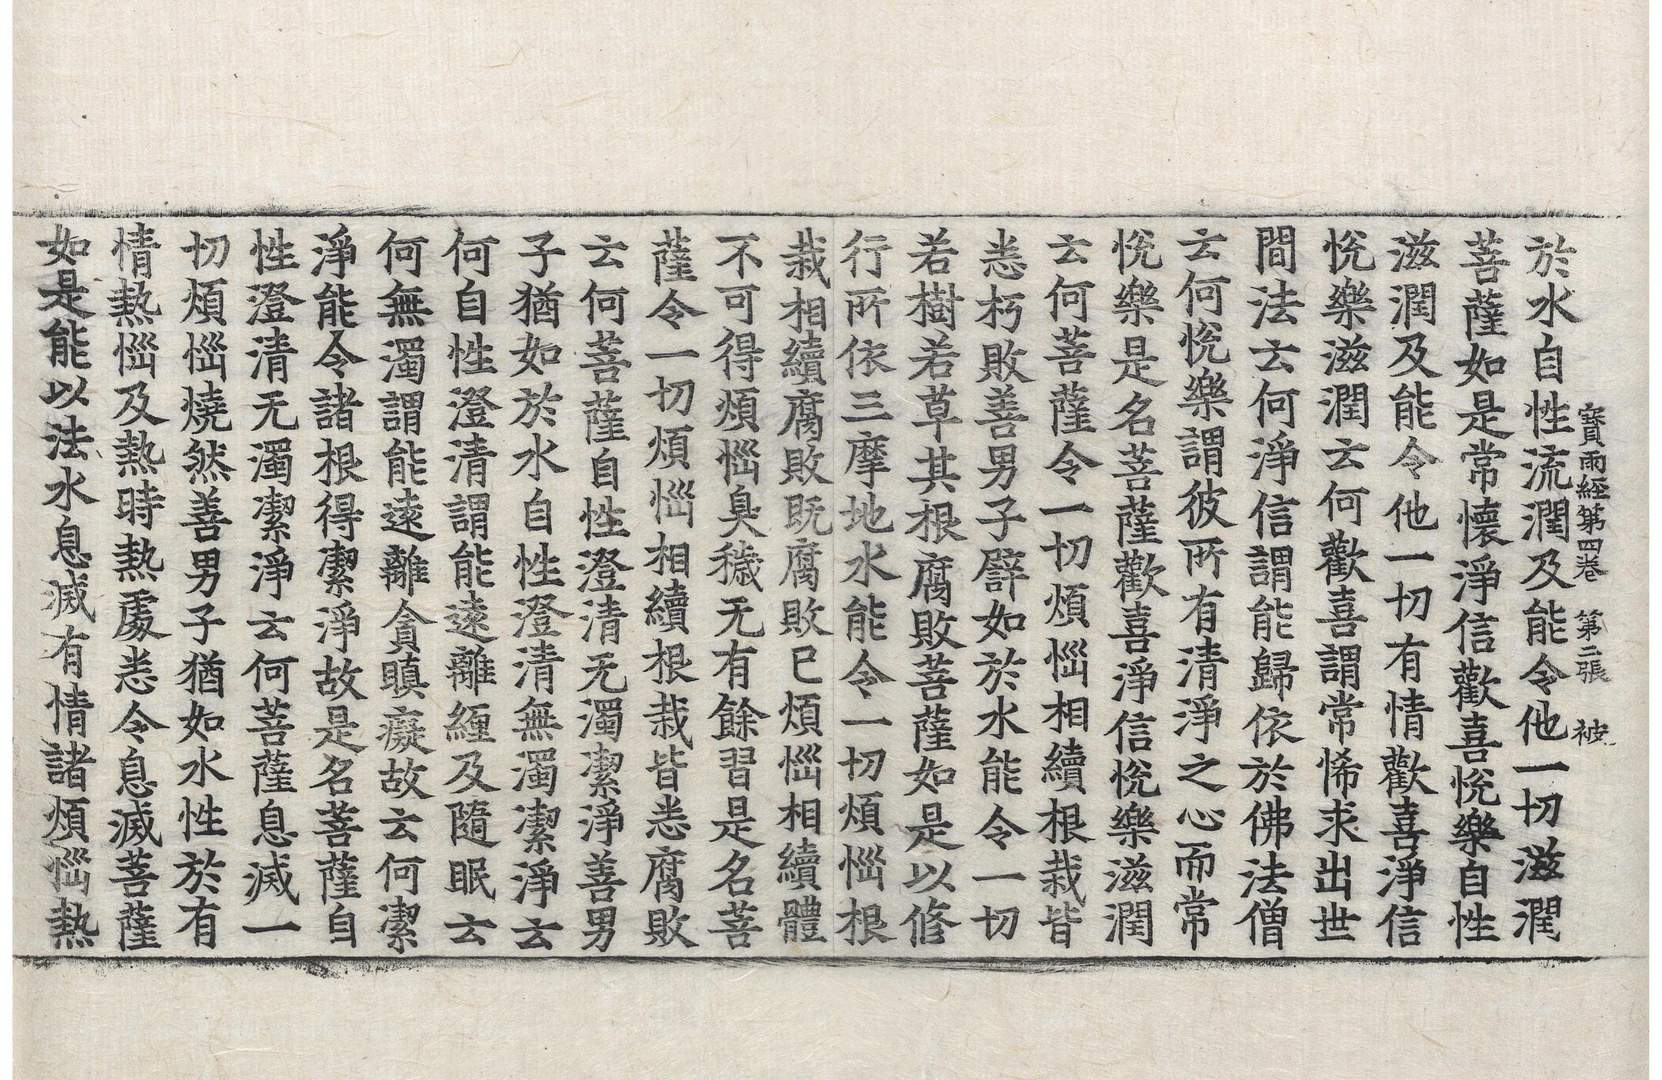 寶雨經第四卷 第二張 被
於水自性流潤及能令他一切滋潤
菩薩如是常懷淨信歡喜悅樂自性
滋潤及能令他一切有情歡喜淨信
悅樂滋潤云何歡喜謂常悕求出世
間法云何淨信謂能歸依於佛法僧
云何悅樂謂彼所有清淨之心而常
悅樂是名菩薩歡喜淨信悅樂滋潤
云何菩薩令一切煩惱相續根栽皆
悉朽敗善男子譬如於水能令一切
若樹若草其根腐敗菩薩如是以修
行所依三摩地水能令一切煩惱根
栽相續腐敗旣腐敗已煩惱相續體
不可得煩惱臭穢无有餘習是名菩
薩令一切煩惱相續根栽皆悉腐敗
云何菩薩自性澄清无濁潔淨善男
子猶如於水自性澄清無濁潔淨云
何自性澄清謂能遠離纏及隨眠云
何無濁謂能遠離貪瞋癡故云何潔
淨能令諸根得潔淨故是名菩薩自
性澄清无濁潔淨云何菩薩息滅一
切煩惱燒然善男子猶如水性於有
情熱惱及熱時熱處悉令息滅菩薩
如是能以法水息滅有情諸煩惱熱